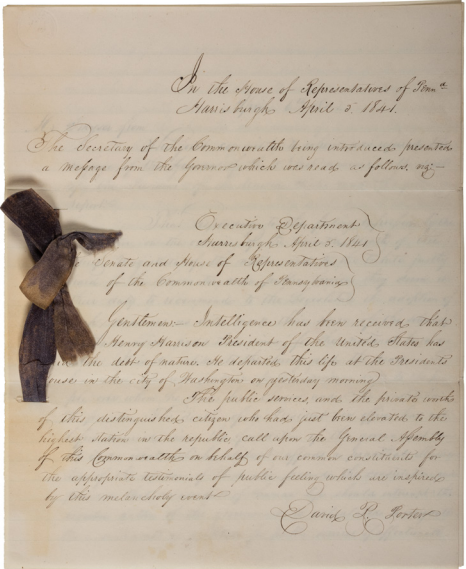 In the House of Representatives of Penna
Harrisburgh April 5. 1841.
The Secretary of the Commonwealth being introduced presented
a message from the Governor which was read as follows, viz:—
Executive Department
Harrisburgh April 5. 1841
Senate and House of Representatives
of the Commonwealth of Pennsylvania
Gentlemen:— Intelligence has been received that
Henry Harrison President of the United States has
the debt of nature. He departed this life at the Presidents
in the city of Washington on yesterday morning
The public services and the private worth
of this distinguished citizen who had just been elevated to the
highest station in the republic, call upon the General Assembly
of this Commonwealth on behalf of our common constituents for
the appropriate testimonials of public feeling which are inspired
by this melancholy event
David R. Porter